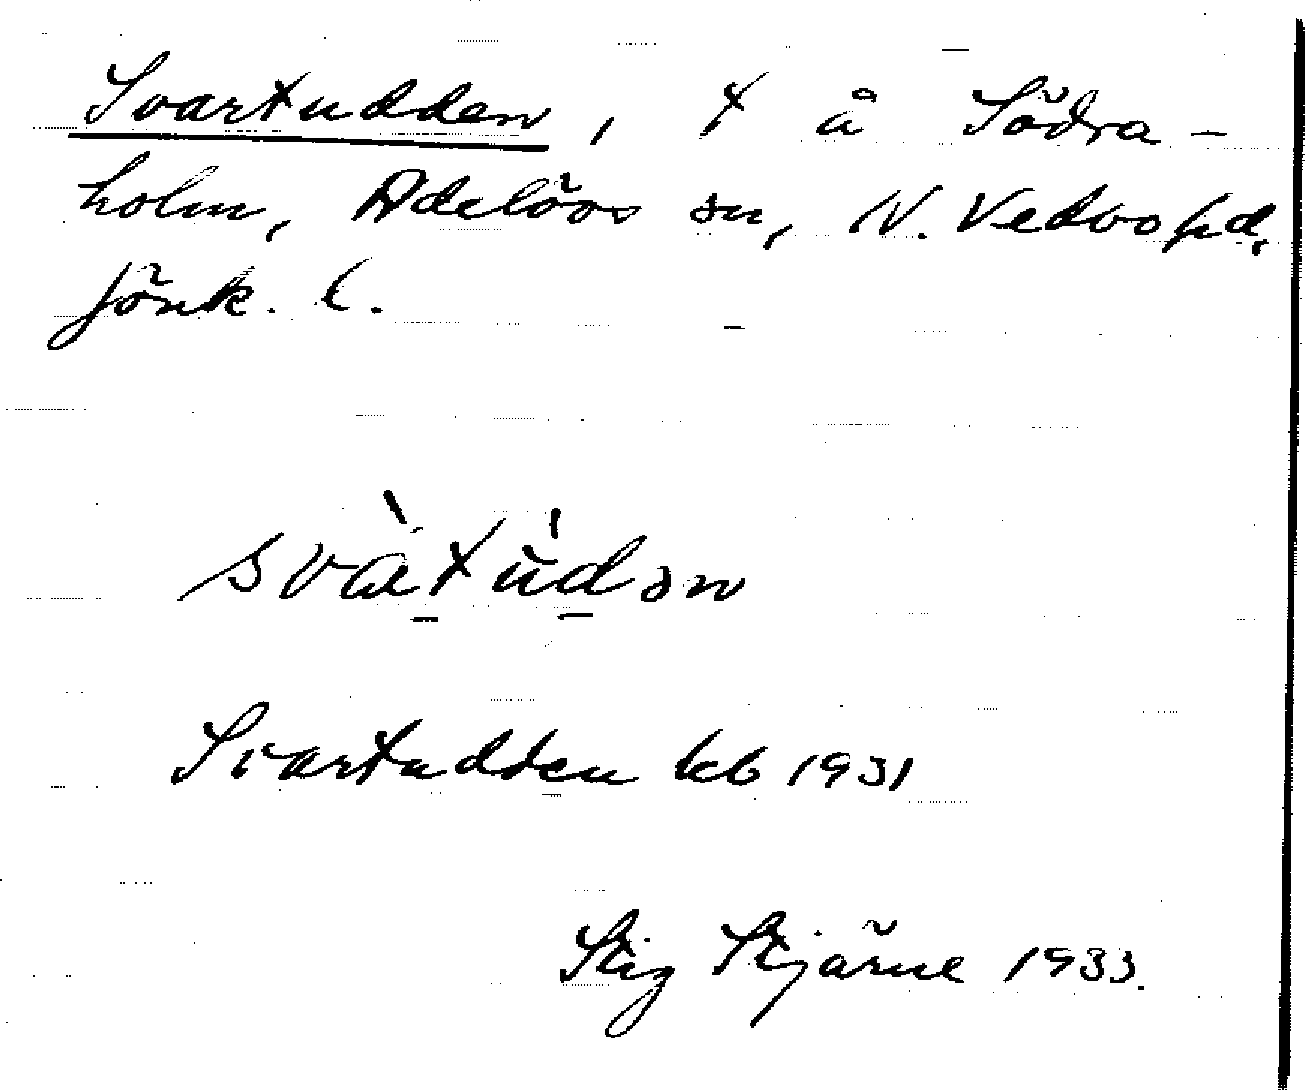 Svartudden, t å Södra-
holm, Adelövs sn, N. Vedbo hd,
Jönk. l.
svàtúdən
Svartudden kb 1931
Stig Stjärne 1933.